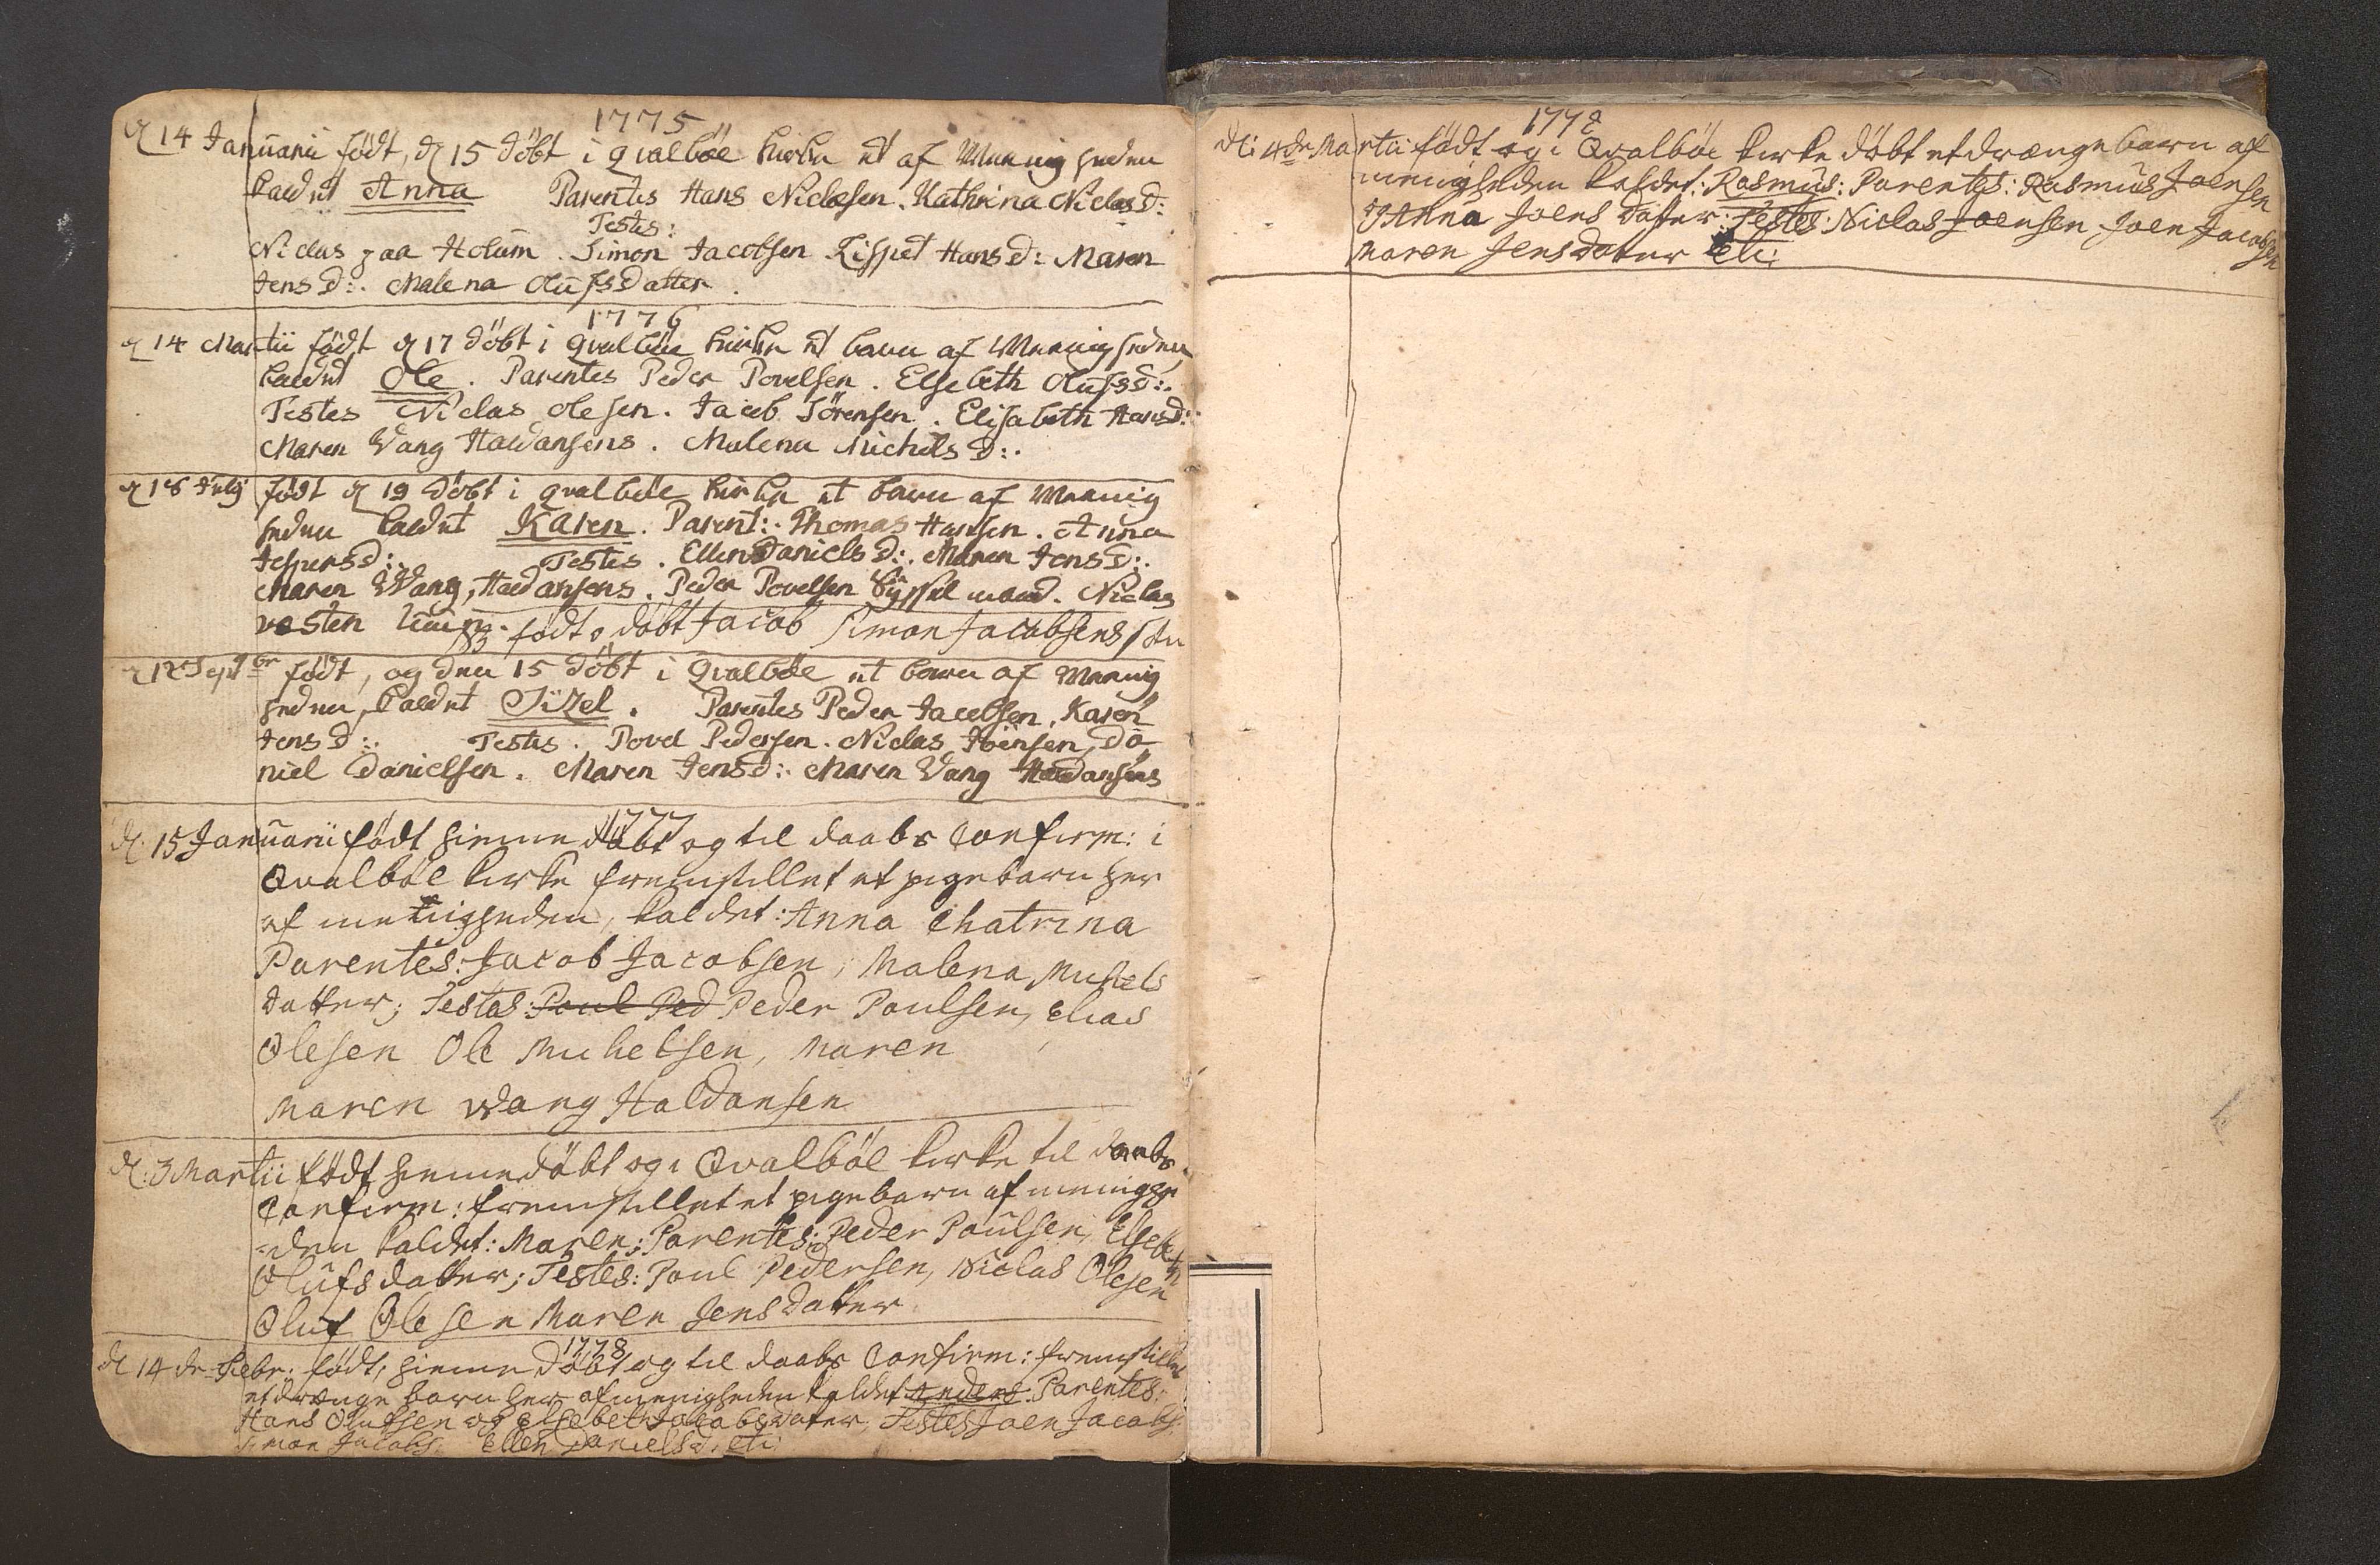 1775
d 14 Januarii födt, d 15 döbt i Qvalböe kirke et af Meenigheden
kaldet Anna Parentes Hans Niclesen. Kathrina Niclas D:
Testes:
Niclas paa Holum. Simon Jacobsen. Lispet Hans D: Maren
Jens D:. Malena Olufsdatter.
1776
d 14 Martii födt d 17 döbt i Qvalböe kirke et barn af Meenigheden
kaldet Ole. Parentes Peder Povelsen. Elsebeth Olufs D:.
Testes Niclas Olesen. Jacob Sörensen. Elisabeth Hans D:
Maren Wang Haldansens. Malena Michels D:.
d 18 Julij födt d 19 döbt i Qvalböe kirke et barn af Meenig
heden kaldet Karen. Parent:. Thomas Hansen. Anna
Jespers D:. Testes. Ellen Daniels D:. Maren Jens D:.
Maren Wang, Haldansens. Peder Povelsen Syssel mand. Niclas
vesten
födt o döbt Jacob Simon Jacobsens Sön
d 12 Septbr födt, og den 15 döbt i Qvalböe et barn af Meenig
heden, kaldet Sizel. Parentes Peder Jacobsen. Karen
Jens D:. Testes. Povel Pedersen. Niclas Joensen, Da
niel Danielsen. Maren Jens D:. Maren Wang Haldansens
1777
d. 15 Januarii födt hieme döbt og til daabs Confirm: i
Qvalböe kirke fremstillet et pigebarn her
af menigheden, kaldet: Anna Chatrina
Parentes: Jacob Jacobsen, Malena Michels
datter; Testes: Poul Ped Peder Poulsen, Elias
Olesen Ole Michelsen, Maren
Maren Wang Haldansen
d. 3 Martii födt hieme döbt og i Qvalböe kirke til daabs
Confirm: fremstillet et pigebarn af menighe
=den kaldet: Maren; Parentes: Peder Poulsen, Elsebeth
Olufsdatter; Testes: Poul Pedersen, Niclas Olesen
Oluf Olesen Maren Jensdatter
1778
d 14 de Febr: födt, hieme döbt og til daabs Confirm: fremstillet
et drænge barn her af menigheden kaldet Anders Parentes:
Hans Olufsen og Elsebeth Jacobsdater, Testes Joen Jacobs:
Simon Jacobs: Ellen Danielsd: etc:
1778
d: 4de Martii födt og i Qvalböe kirke döbt et drænge barn af
menigheden kaldet: Rasmus: Parentes: Rasmus Joensen
Anna Joens Datter: Testes: Niclas Joensen Joen Jacobsen
Maren Jensdatter etc: